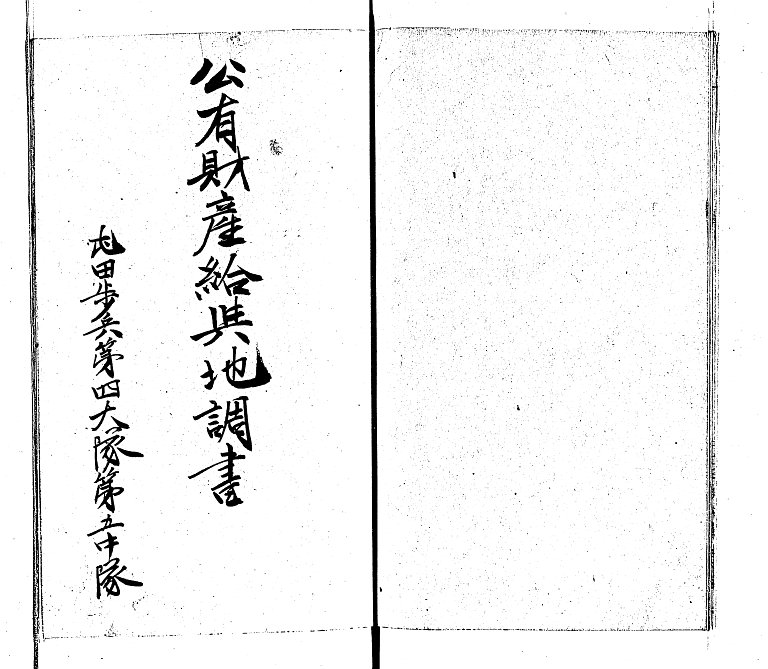 公有財産給與地調書
屯田歩兵第四大隊第五中隊